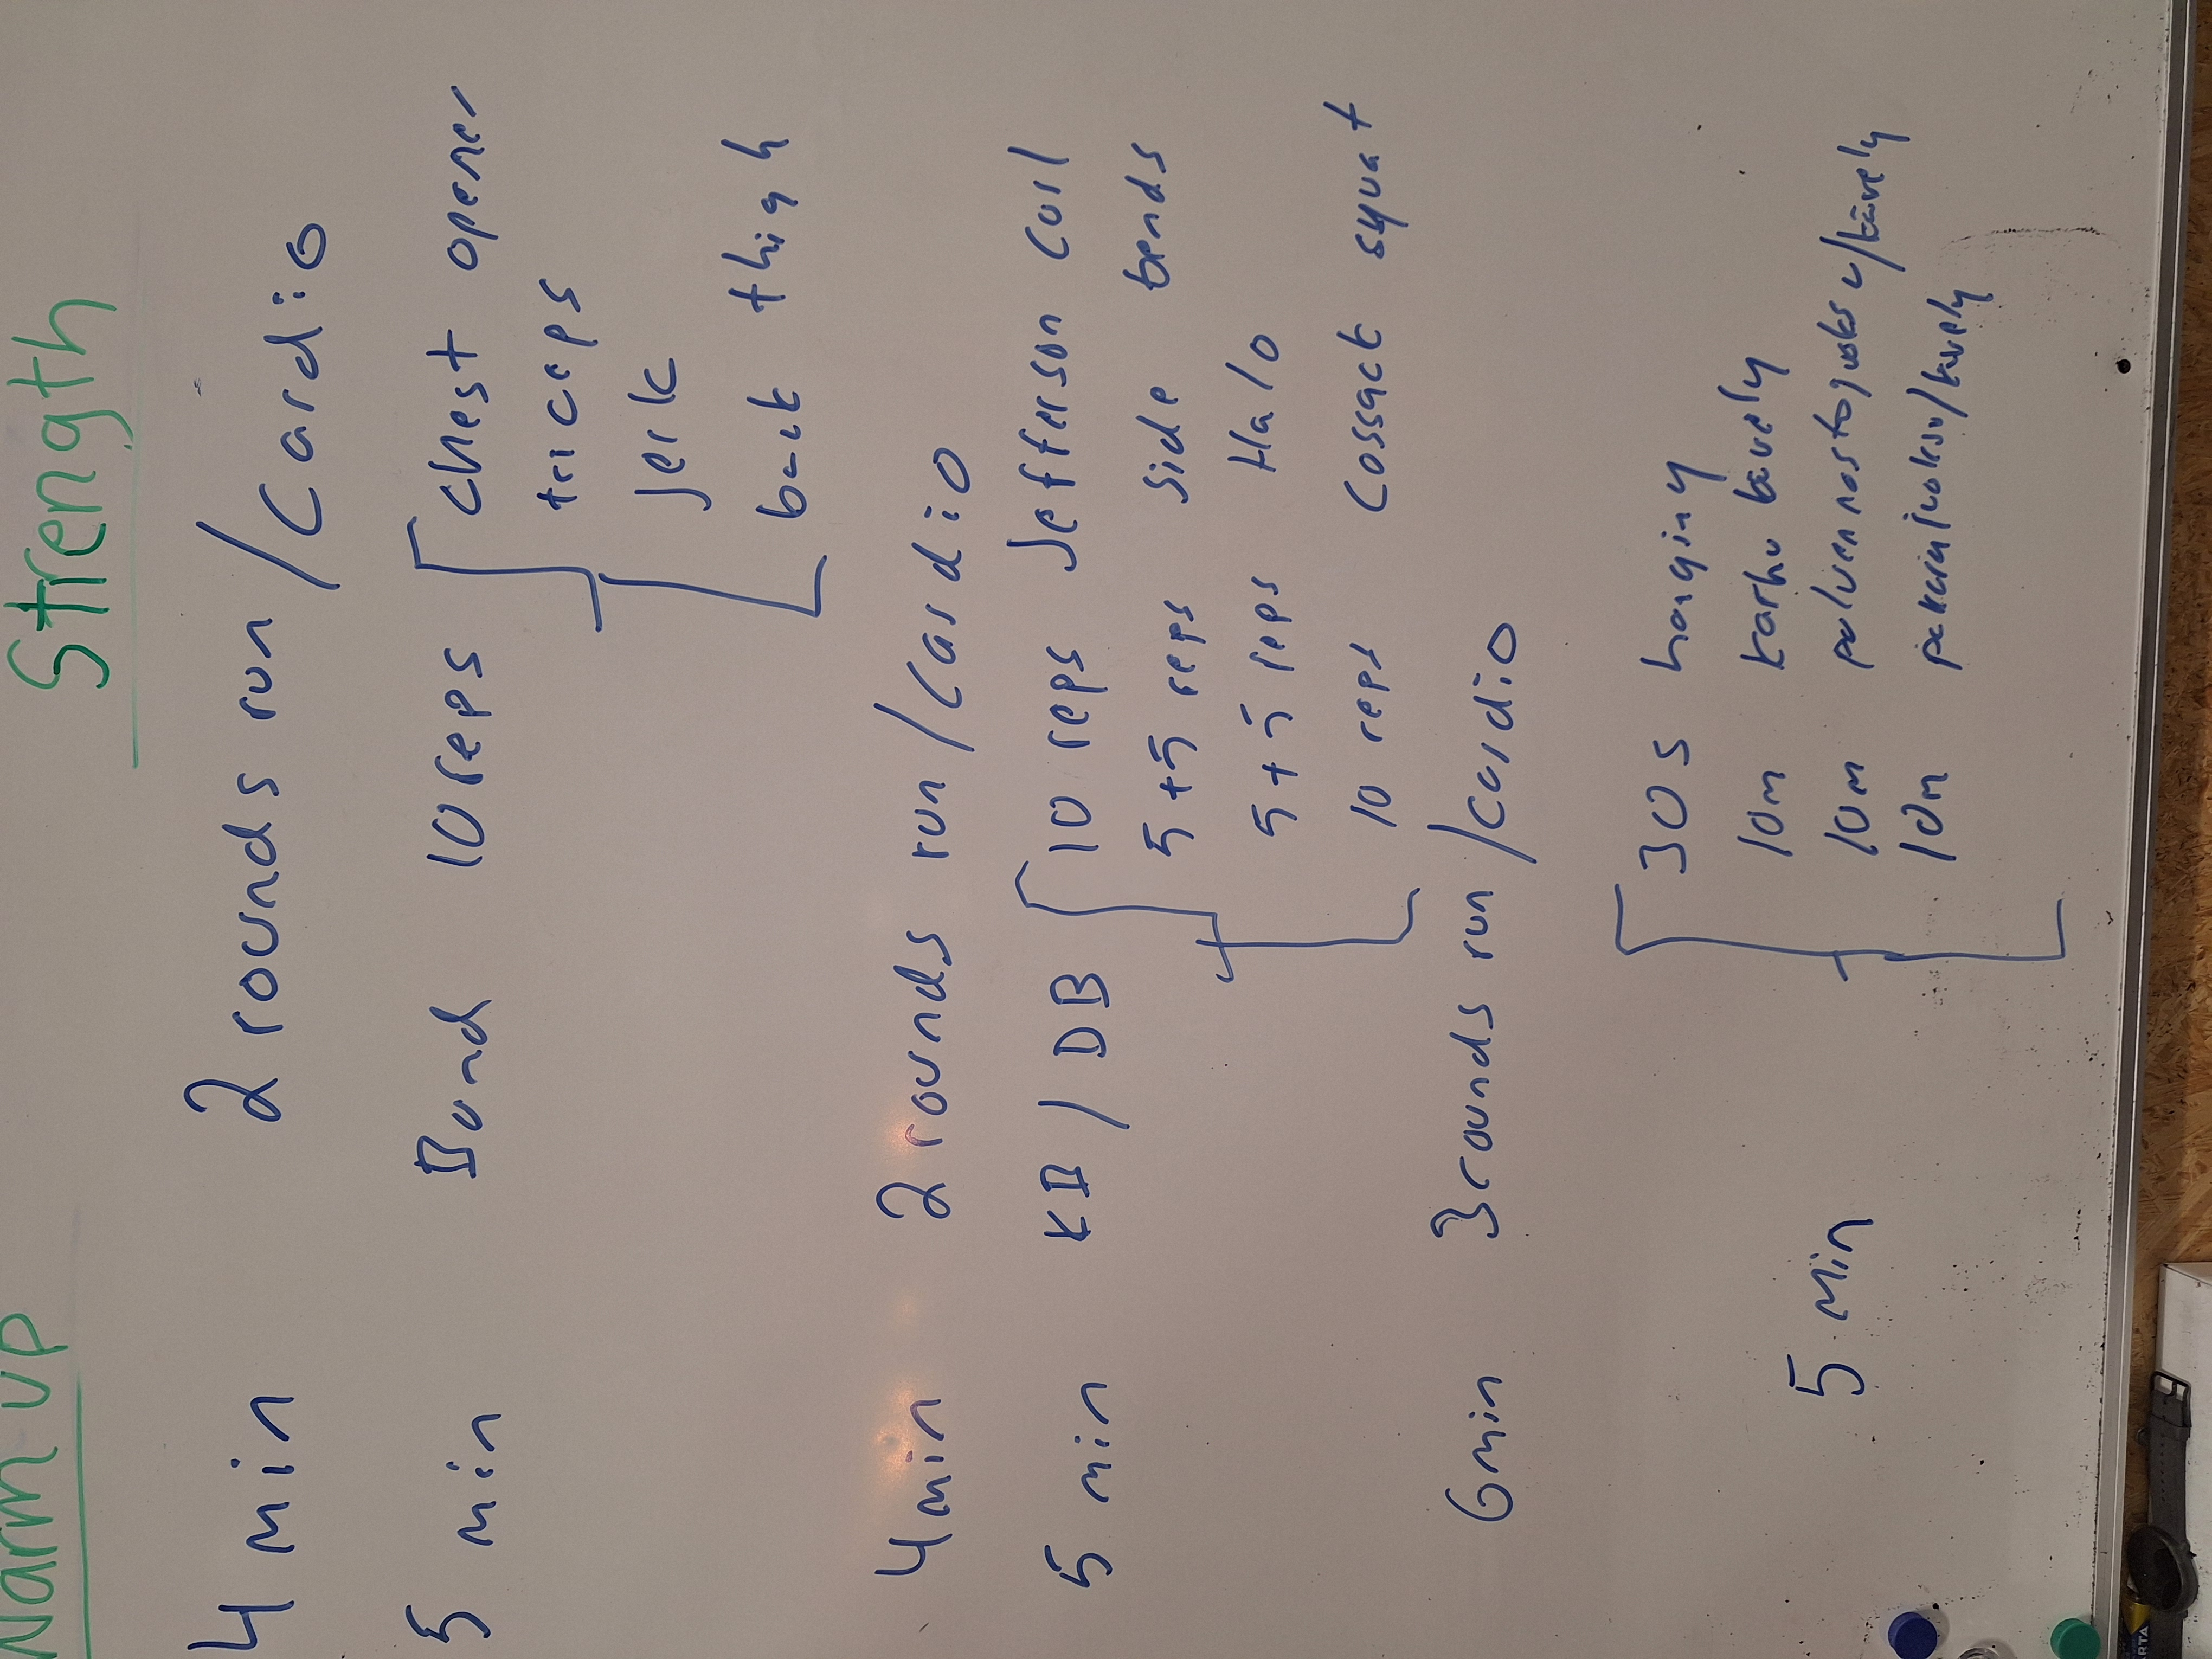 Warm up
Strength
4 min 2 rounds run / Cardio
5 min Band 10 reps chest opener
triceps
Jerk
back thigh
4 min 2 rounds run / Cardio
5 min KB / DB 10 reps Jefferson curl
5+5 reps side bends
5+5 reps Halo
10 reps Cossack squat
6 min 3 rounds run / Cardio
30s hanging
10m karhu kävely
5 min 10m polvennostojuoksu/kävely
10m pakarajuoksu/kävely
ARTA